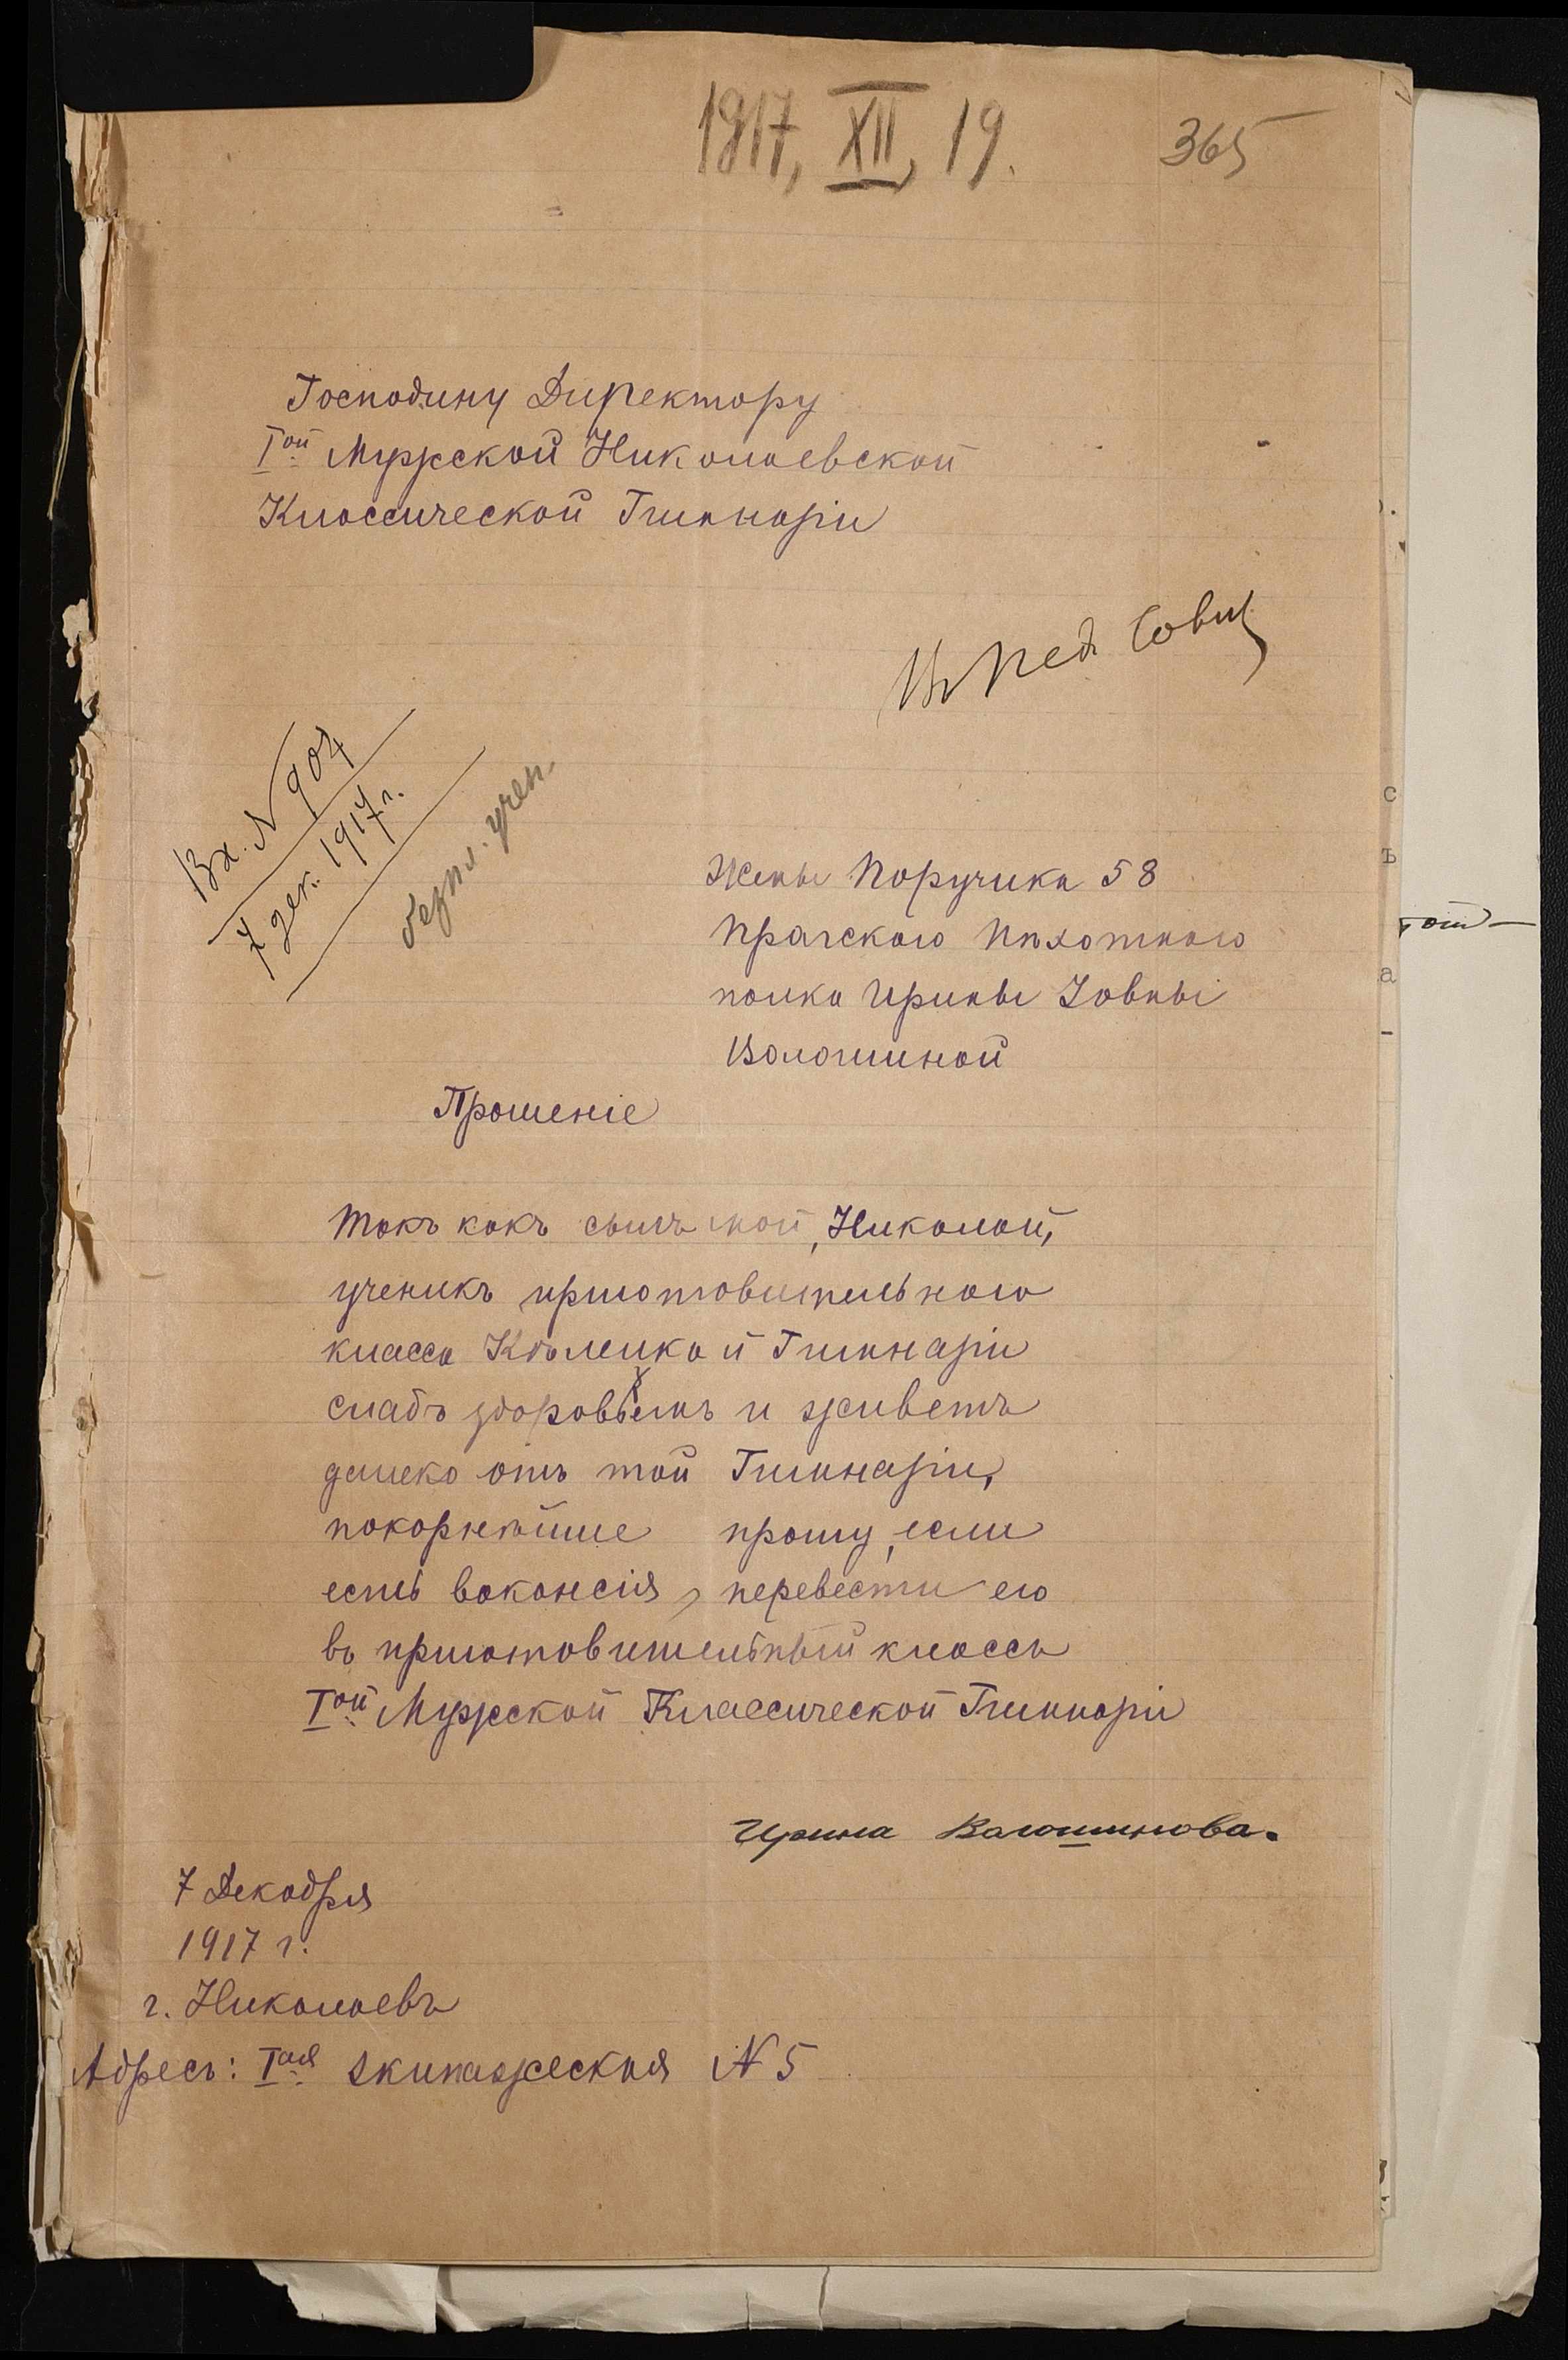 1917, XII, 19.
365
Господину Директору
Iой Мужской Николаевской
Классической Гимназіи
Въ Пед. Сов.
Вх. N 904
7 дек. 1917 г.
безпл. учен.
Жены Поручика 58
Прагского Пѣхотного
полка Ирины Іовны
Волошиной
Прошеніе
Такъ какъ сынъ мой, Николай,
ученикъ приготовительного
класса Коленко й Гимназіи
слабъ здоровьемъ и живетъ
далеко отъ той Гимназіи,
покорнѣйше прошу, если
есть вакансія, перевести его
въ приготовительный классъ
Iой Мужской Классической Гимназіи
Ирина Волошинова.
7 Декабря
1917 г.
г. Николаевъ
Адресъ: Iая Экипажеская N 5
с
ъ
а
-